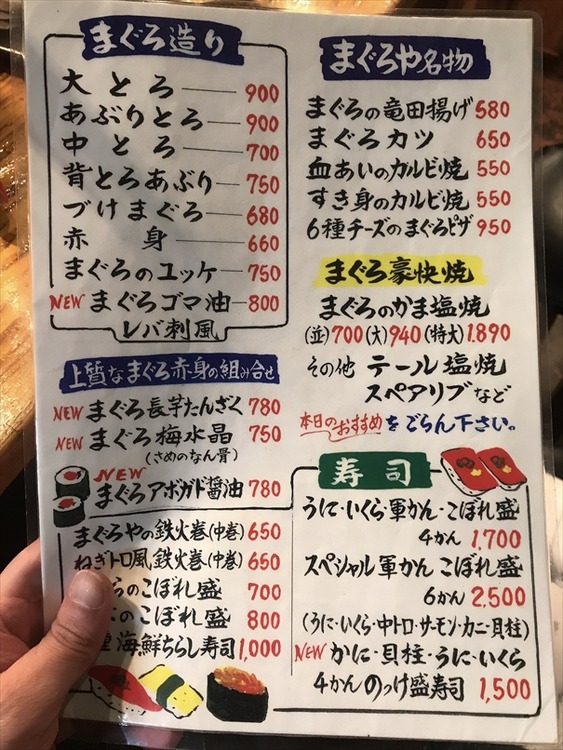 まぐろ造り
大とろ 900
あぶりとろ 900
中とろ 700
背とろあぶり 750
づけまぐろ 680
赤身 660
まぐろのユッケ 750
NEW まぐろゴマ油 800
レバ刺風
上質なまぐろ赤身の組み合せ
NEW まぐろ長芋たんざく 780
NEW まぐろ梅水晶 750
(さめのなん骨)
NEW
まぐろアボガド醤油 780
まぐろやの鉄火巻(中巻) 650
ねぎトロ風鉄火巻(中巻) 650
らのこぼれ盛 700
のこぼれ盛 800
海鮮ちらし寿司 1,000
まぐろや名物
まぐろの竜田揚げ 580
まぐろカツ 650
血あいのカルビ焼 550
すき身のカルビ焼 550
6種チーズのまぐろピザ 950
まぐろ豪快焼
まぐろのかま塩焼
(並)700(大)940(特大)1.890
その他 テール塩焼
スペアリブなど
本日のおすすめをごらん下さい。
寿司
うに・いくら・軍かん・こぼれ盛
4かん 1,700
スペシャル軍かん こぼれ盛
6かん 2,500
(うに・いくら・中トロ・サーモン・カニ・貝柱)
NEW かに・貝柱・うに・いくら
4かんのっけ盛寿司 1,500